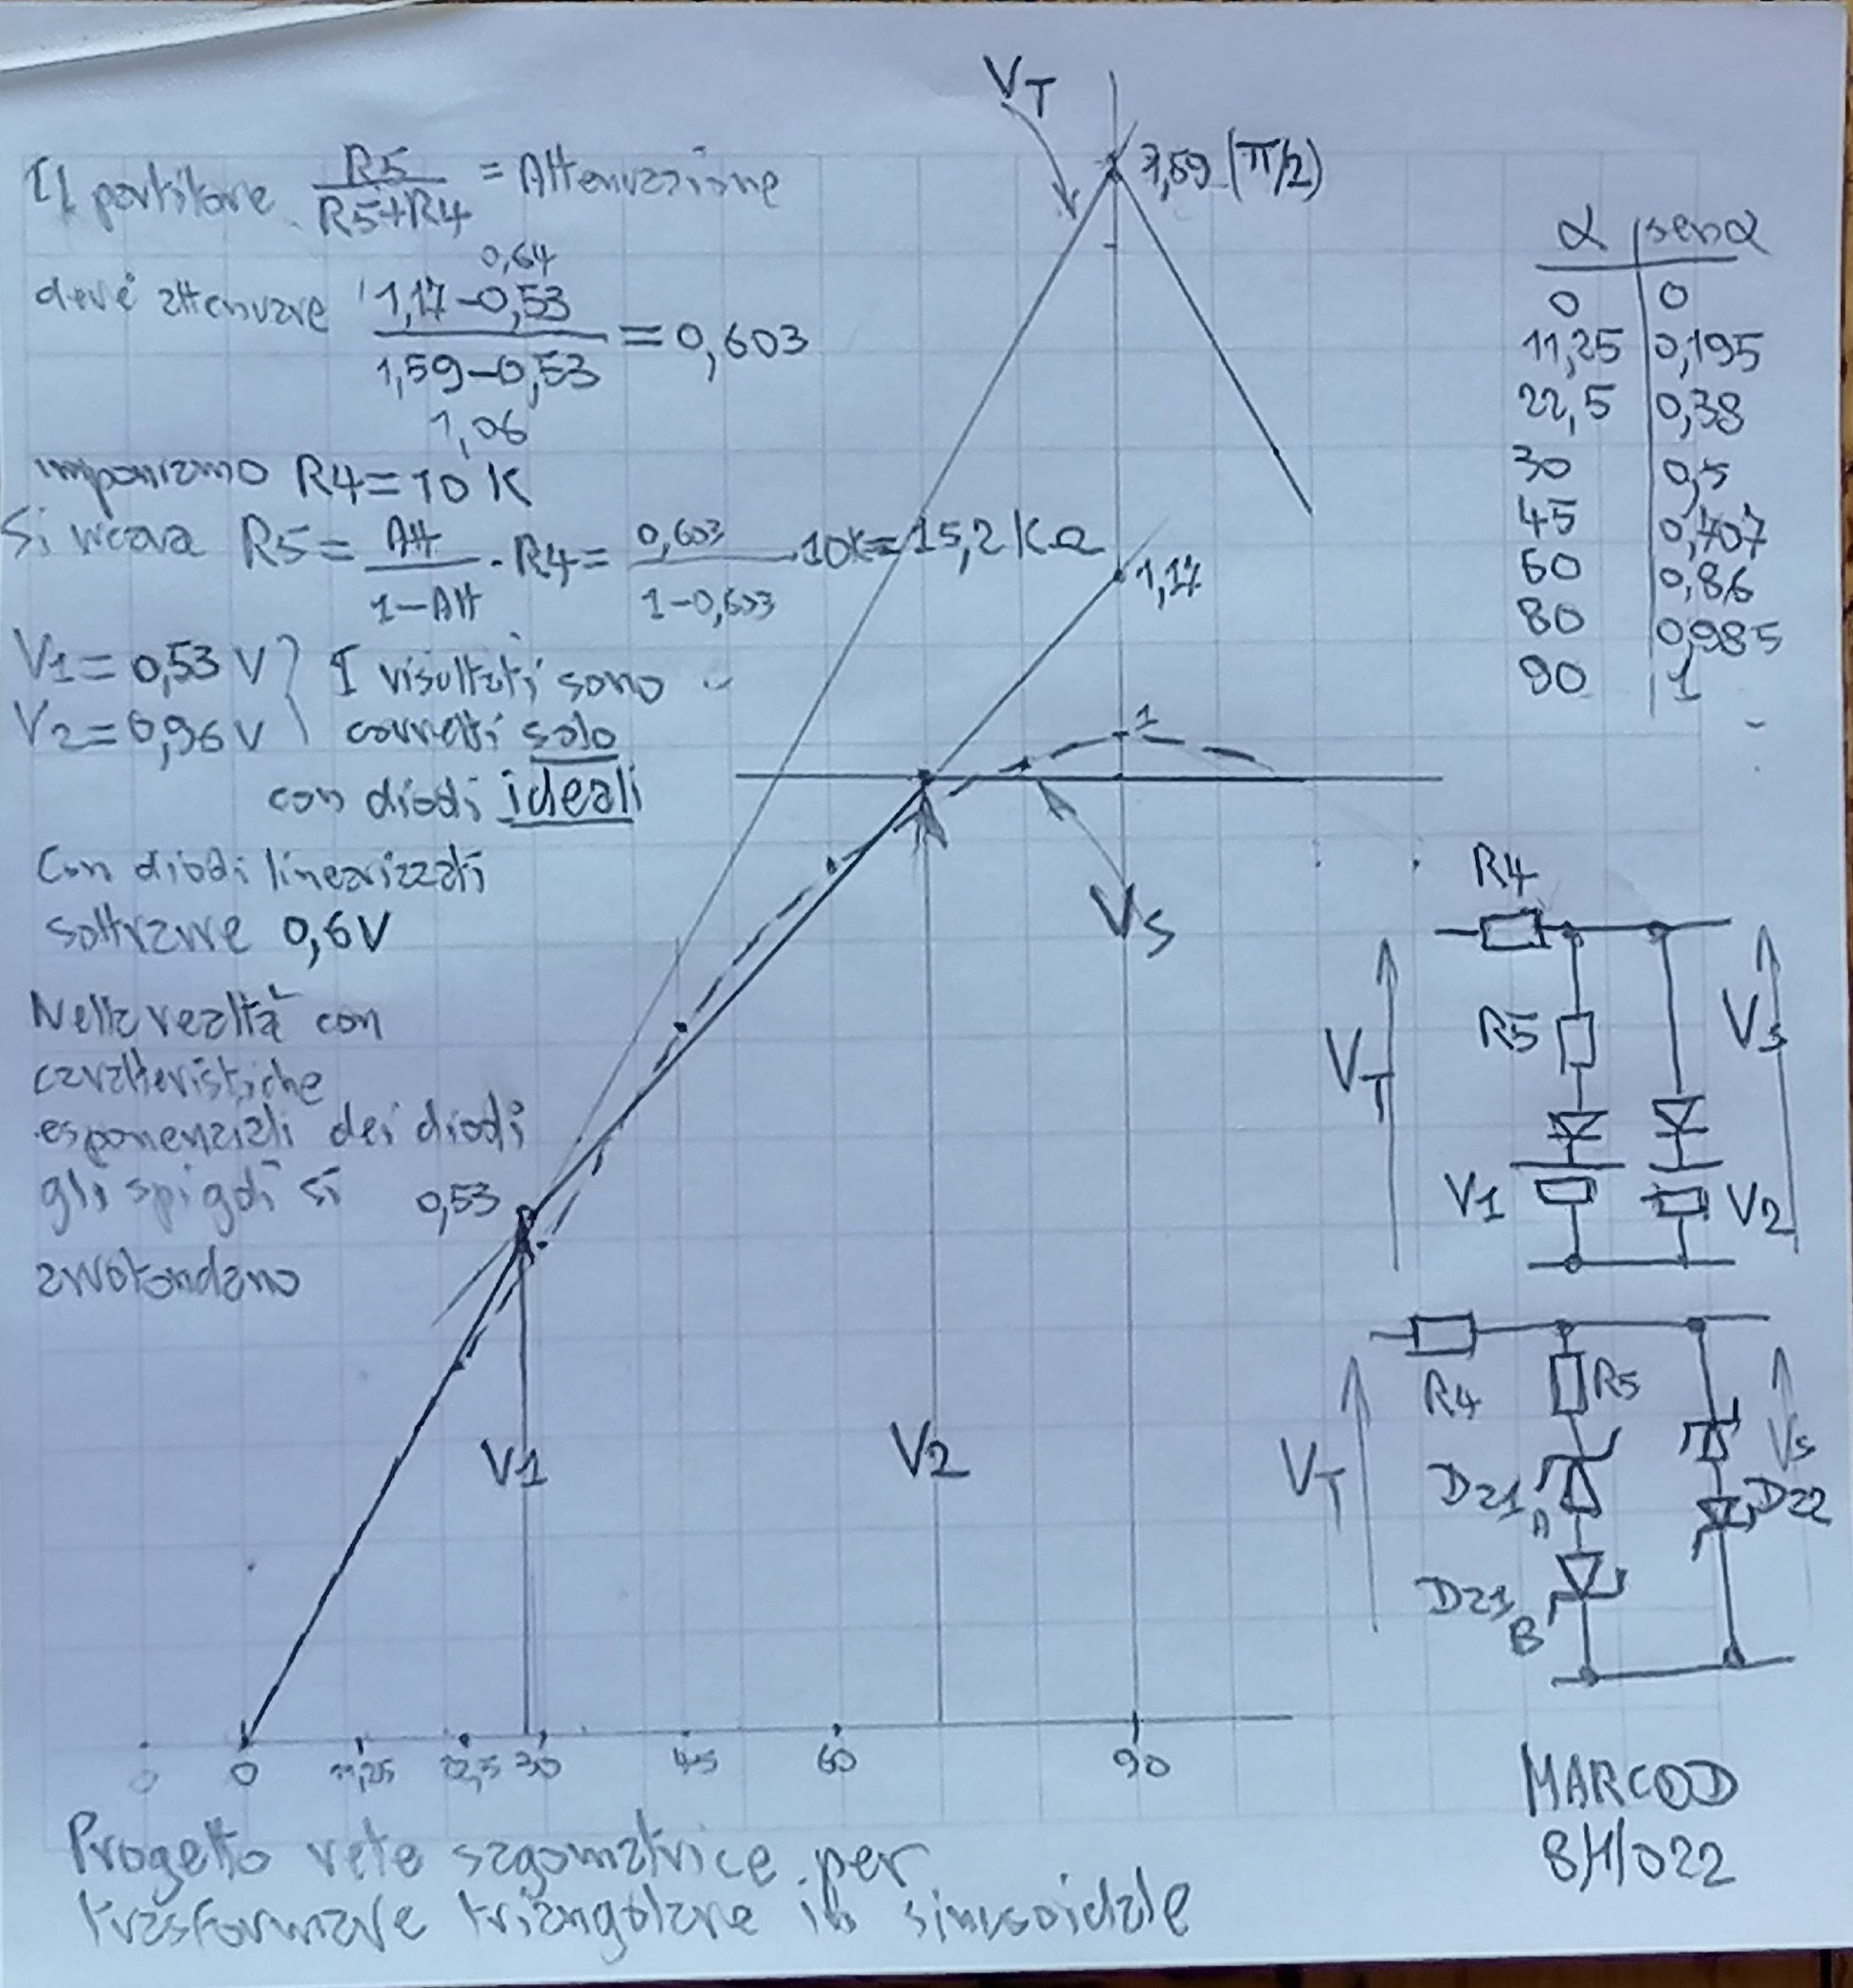 Il partitore R5/(R5+R4) = Attenuazione
0,64
deve attenuare (1,17-0,53)/(1,59-0,53) = 0,603
1,06
imponiamo R4=10 K
Si ricava R5= Att/(1-Att) · R4= 0,603/(1-0,603) · 10K= 15,2 KΩ
V1= 0,53 V } I risultati sono
V2=0,96 V } corretti solo
con diodi ideali
Con diodi linearizzati
sottrarre 0,6V
Nella realtà con
caratteristiche
esponenziali dei diodi
gli spigoli si
arrotondano
VT
1,59 (π/2)
1,17
1
VS
0,53
V1
V2
0 0 11,25 22,5 30 45 60 90
α | senα
0 | 0
11,25 | 0,195
22,5 | 0,38
30 | 0,5
45 | 0,707
60 | 0,86
80 | 0,985
90 | 1
R4
R5
VT
VS
V1
V2
R4
R5
VT
VS
DZ1A
DZ2
DZ1B
Progetto rete sagomatrice per
trasformare triangolare in sinusoidale
MARCOD